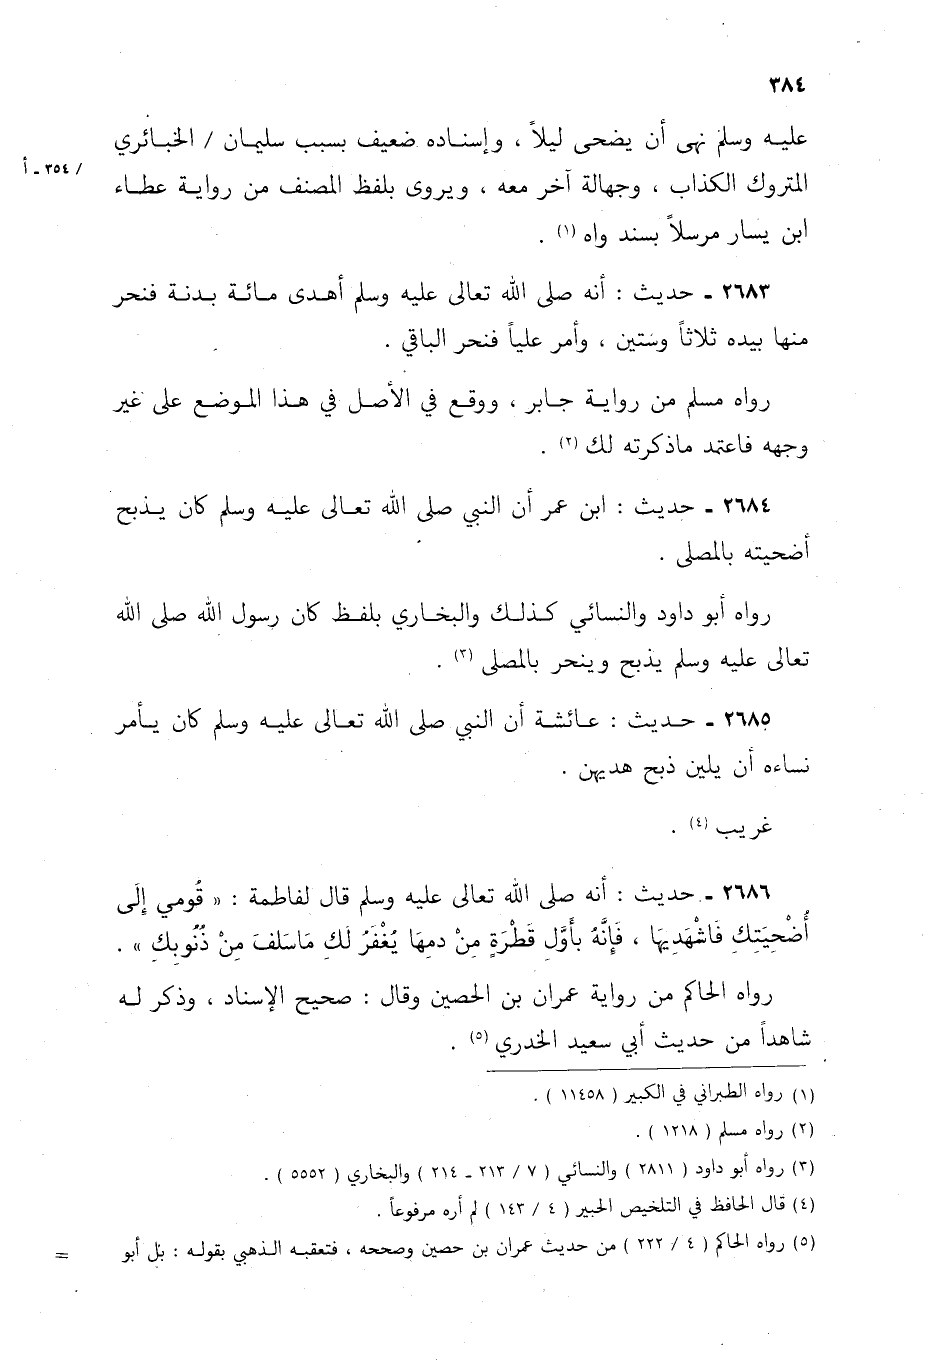 ٣٨٤
عليه وسلم نهى أن يضحى ليلاً ، وإسناده ضعيف بسبب سليمان / الخبائري
/ ٣٥٤ - أ
المتروك الكذاب ، وجهالة آخر معه ، ويروى بلفظ المصنف من رواية عطاء
ابن يسار مرسلاً بسند واه (١) .
٢٦٨٣ - حديث : أنه صلى الله تعالى عليه وسلم أهدى مائة بدنة فنحر
منها بيده ثلاثاً وستين ، وأمر علياً فنحر الباقي .
رواه مسلم من رواية جابر ، ووقع في الأصل في هذا الموضع على غير
وجهه فاعتمد ماذكرته لك (٢) .
٢٦٨٤ - حديث : ابن عمر أن النبي صلى الله تعالى عليه وسلم كان يذبح
أضحيته بالمصلى .
رواه أبو داود والنسائي كذلك والبخاري بلفظ كان رسول الله صلى الله
تعالى عليه وسلم يذبح وينحر بالمصلى (٣) .
٢٦٨٥ - حديث : عائشة أن النبي صلى الله تعالى عليه وسلم كان يأمر
نساءه أن يلين ذبح هديهن .
غريب (٤) .
٢٦٨٦ - حديث : أنه صلى الله تعالى عليه وسلم قال لفاطمة : « قُومي إِلَى
أُضْحِيَتِكِ فَاشْهَدِيهَا ، فَإِنَّهُ بأَوَّلِ قَطْرَةٍ مِنْ دمِهَا يُغْفَرُ لَكِ مَاسَلفَ مِنْ ذُنُوبِكِ » .
رواه الحاكم من رواية عمران بن الحصين وقال : صحيح الإسناد ، وذكر له
شاهداً من حديث أبي سعيد الخدري (٥) .
(١) رواه الطبراني في الكبير ( ١١٤٥٨ ) .
(٢) رواه مسلم ( ١٢١٨ ) .
(٣) رواه أبو داود ( ٢٨١١ ) والنسائي ( ٧ / ٢١٣ - ٢١٤ ) والبخاري ( ٥٥٥٢ ) .
(٤) قال الحافظ في التلخيص الحبير ( ٤ / ١٤٣ ) لم أره مرفوعاً .
(٥) رواه الحاكم ( ٤ / ٢٢٢ ) من حديث عمران بن حصين وصححه ، فتعقبه الذهبي بقوله : بل أبو =